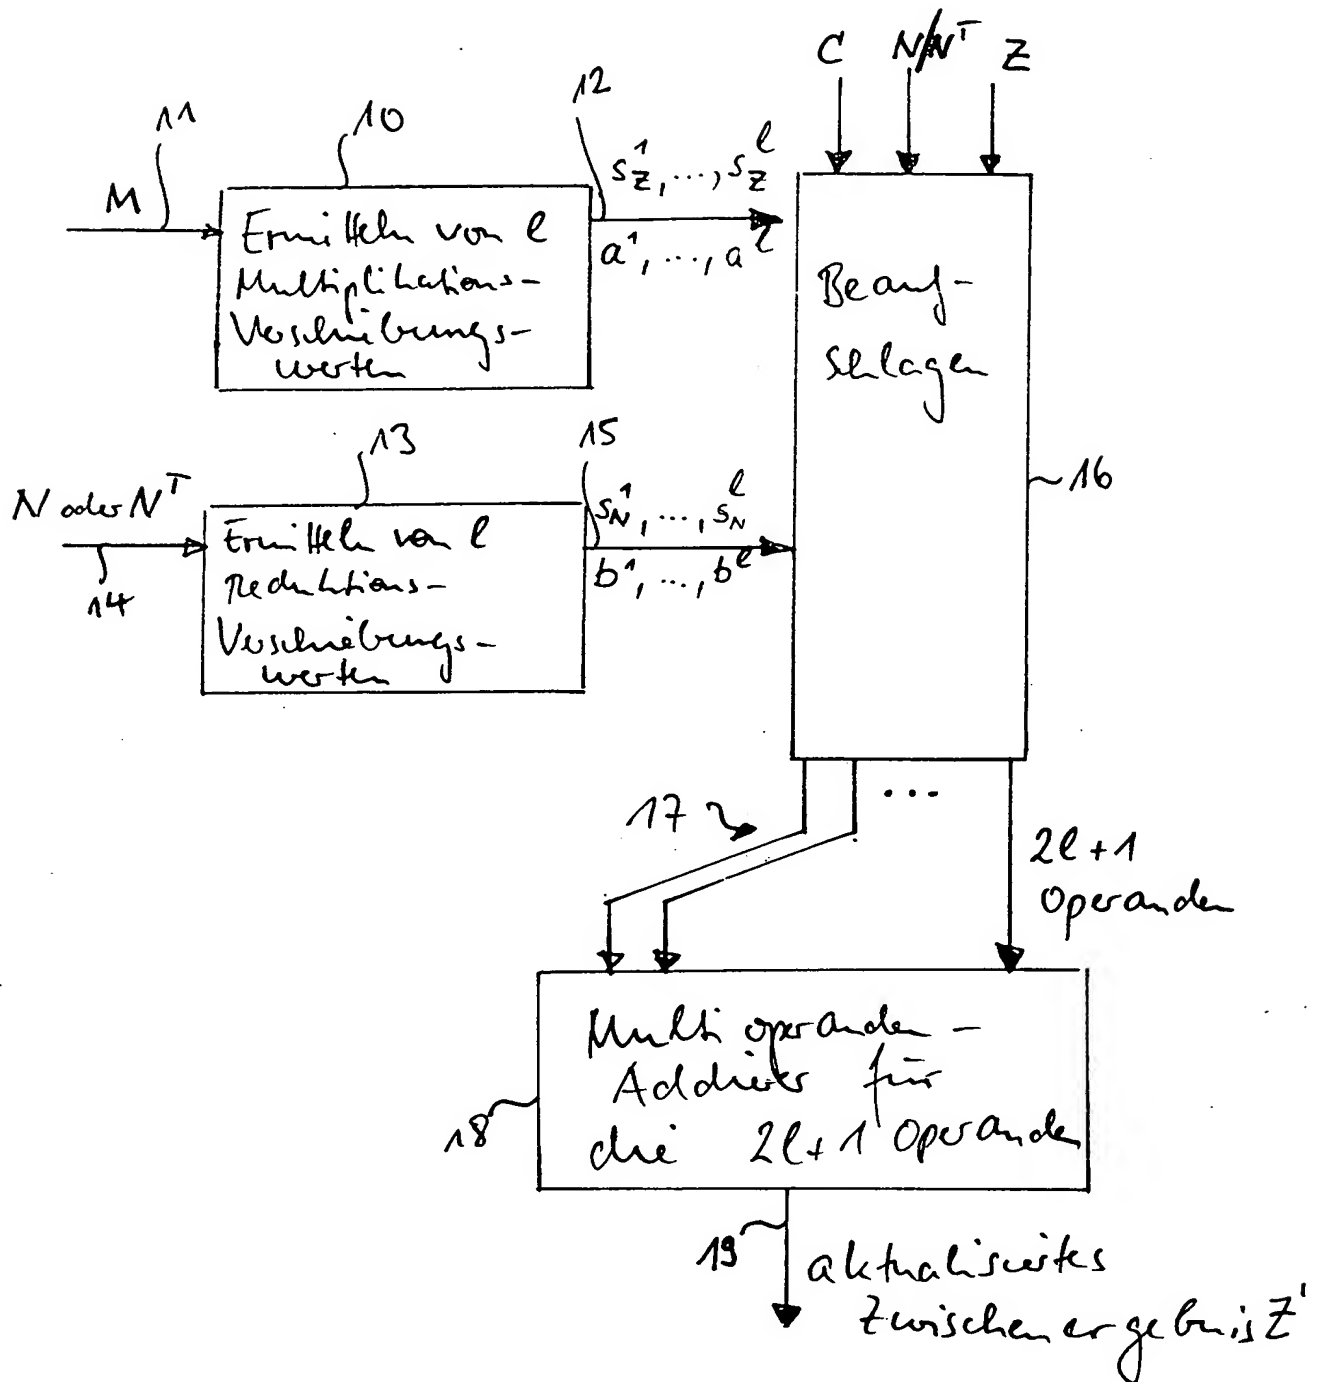 C N/N^T Z
11 10 12
M
s_Z^1, ..., s_Z^l
a^1, ..., a^l
Ermitteln von l
Multiplikations-
Verschiebungs-
werten
Beauf-
schlagen
13 15
16
N oder N^T
s_N^1, ..., s_N^l
b^1, ..., b^l
14
Ermitteln von l
Reduktions-
Verschiebungs-
werten
17 ...
2l+1
Operanden
Multioperanden-
Addierer für
die 2l+1 Operanden
18
19
aktualisiertes
Zwischenergebnis Z'